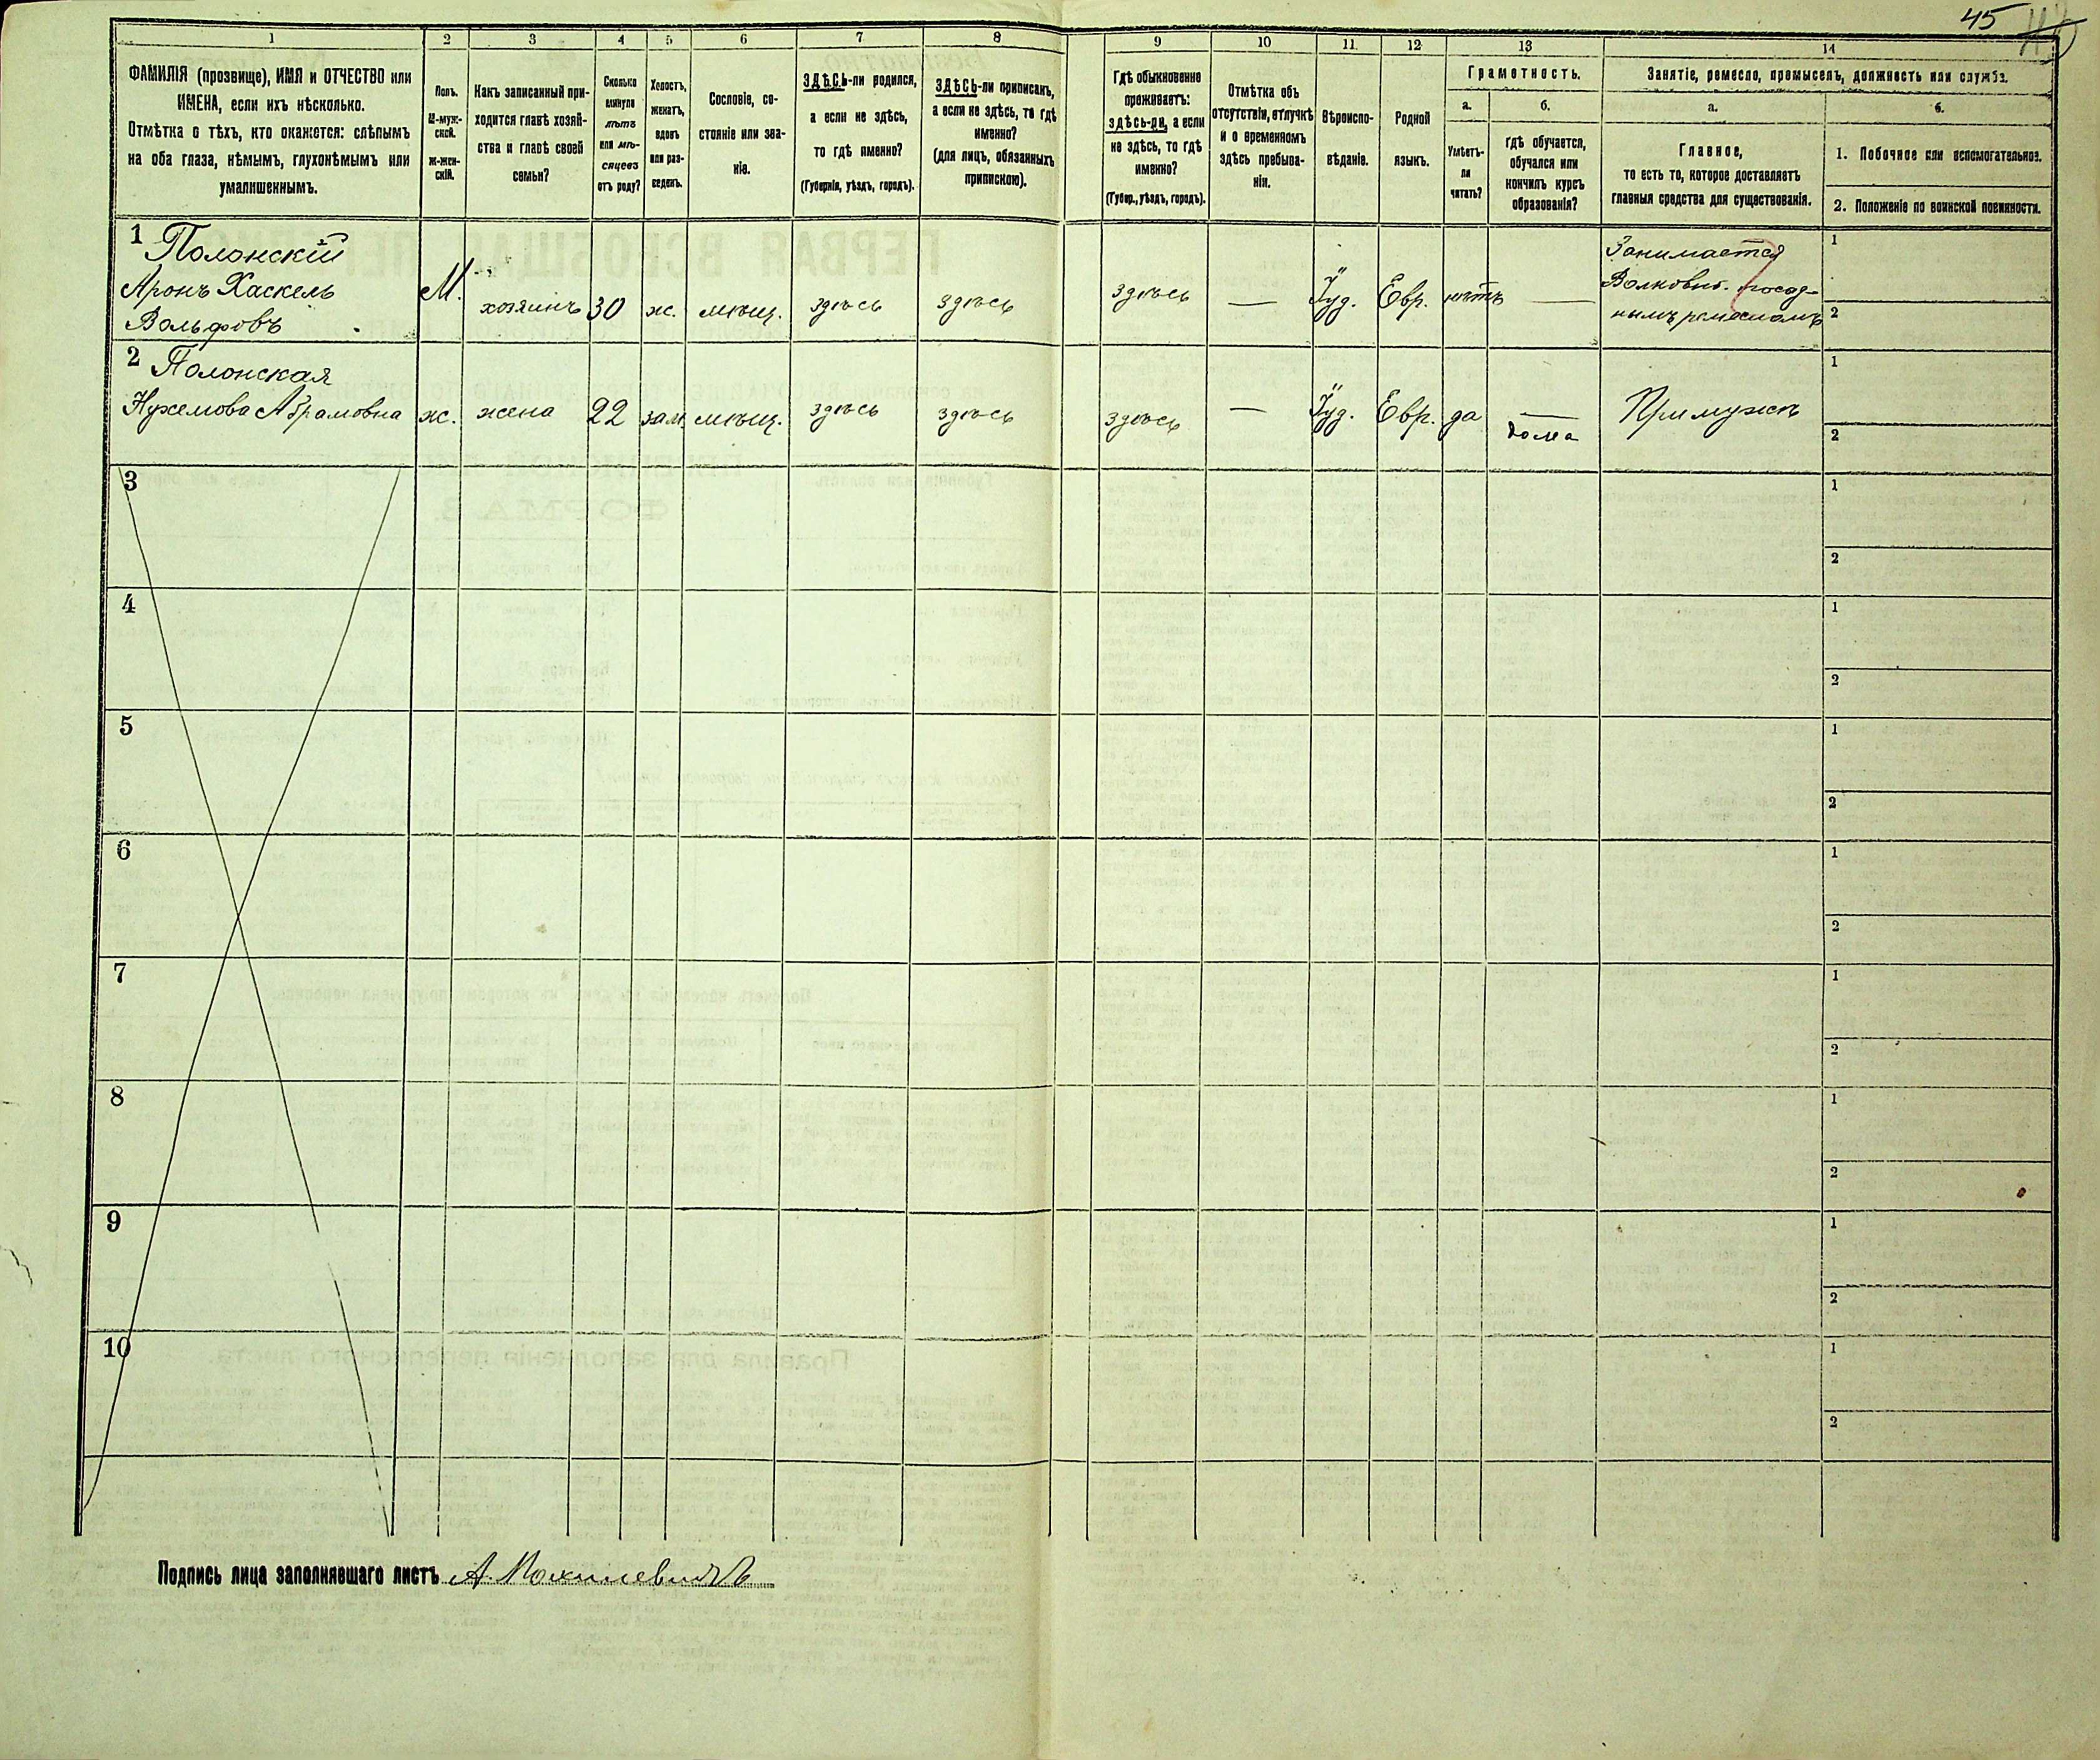 45
1 2 3 4 5 6 7 8 9 10 11 12 13 14
ФАМИЛІЯ (прозвище), ИМЯ и ОТЧЕСТВО или
ИМЕНА, если ихъ нѣсколько.
Отмѣтка о тѣхъ, кто окажется: слѣпымъ
на оба глаза, нѣмымъ, глухонѣмымъ или
умалишеннымъ.
Полъ.
М-муж-
ской.
Ж-жен-
скій.
Какъ записанный при-
ходится главѣ хозяй-
ства и главѣ своей
семьи?
Сколько
минуло
лѣтъ
или мѣ-
сяцевъ
отъ роду?
Холостъ,
женатъ,
вдовъ
или раз-
веденъ.
Сословіе, со-
стояніе или зва-
ніе.
ЗДѢСЬ-ли родился,
а если не здѣсь,
то гдѣ именно?
(Губернія, уѣздъ, городъ).
ЗДѢСЬ-ли приписанъ,
а если не здѣсь, то гдѣ
именно?
(для лицъ, обязанныхъ
припискою).
Гдѣ обыкновенно
проживаетъ:
здѣсь-ли, а если
не здѣсь, то гдѣ
именно?
(Губер., уѣздъ, городъ).
Отмѣтка объ
отсутствіи, отлучкѣ
и о временномъ
здѣсь пребыва-
ніи.
Вѣроиспо-
вѣданіе.
Родной
языкъ.
Грамотность.
а. б.
Умѣетъ-
ли
читать?
гдѣ обучается,
обучался или
кончилъ курсъ
образованія?
Занятіе, ремесло, промыселъ, должность или служба.
а. б.
Главное,
то есть то, которое доставляетъ
главныя средства для существованія.
1. Побочное или вспомогательное.
2. Положеніе по воинской повинности.
1 Полонскій
Аронъ Хаскель
Вольфовъ
М. хозяинъ 30 ж. мѣщ. здѣсь здѣсь здѣсь — Іуд. Евр. нѣтъ —
Занимается
нымъ ремесломъ
1
2
2 Полонская
Абрамовна ж. жена 22 зам. мѣщ. здѣсь здѣсь здѣсь — Іуд. Евр. да — дома При мужѣ
1
2
3
1
2
4
1
2
5
1
2
6
1
2
7
1
2
8
1
2
9
1
2
10
1
2
Подпись лица заполнявшаго листъ А.